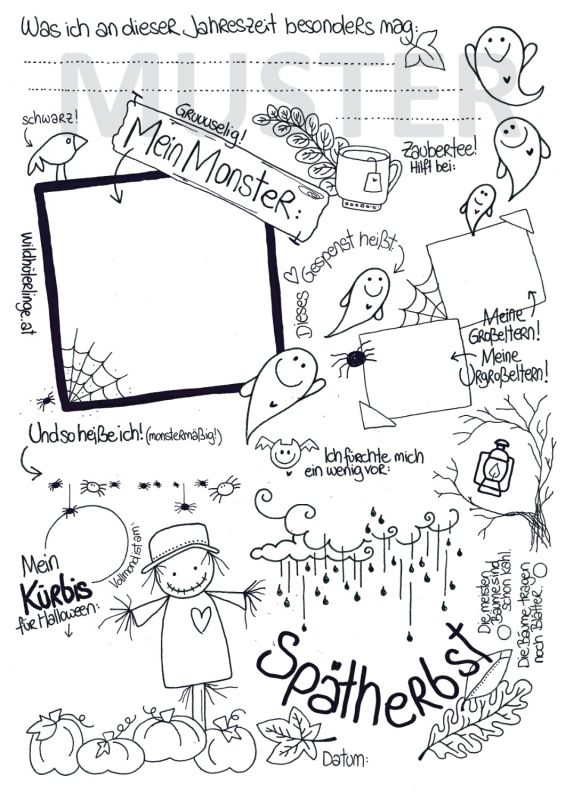 Was ich an dieser Jahreszeit besonders mag:
MUSTER
schwarz!
Gruuuselig!
Mein Monster:
Zaubertee!
Hilft bei:
wildhöterlinge.at
Dieses ♡ Gespenst heißt:
Meine
Großeltern!
Meine
Urgroßeltern!
Und so heiße ich! (monstermäßig!)
Ich fürchte mich
ein wenig vor:
Mein
Kürbis
für Halloween:
Vollmond ist am:
Die meisten
Bäume sind
schon kahl.
Die Bäume tragen
noch Blätter.
Spätherbst
Datum: